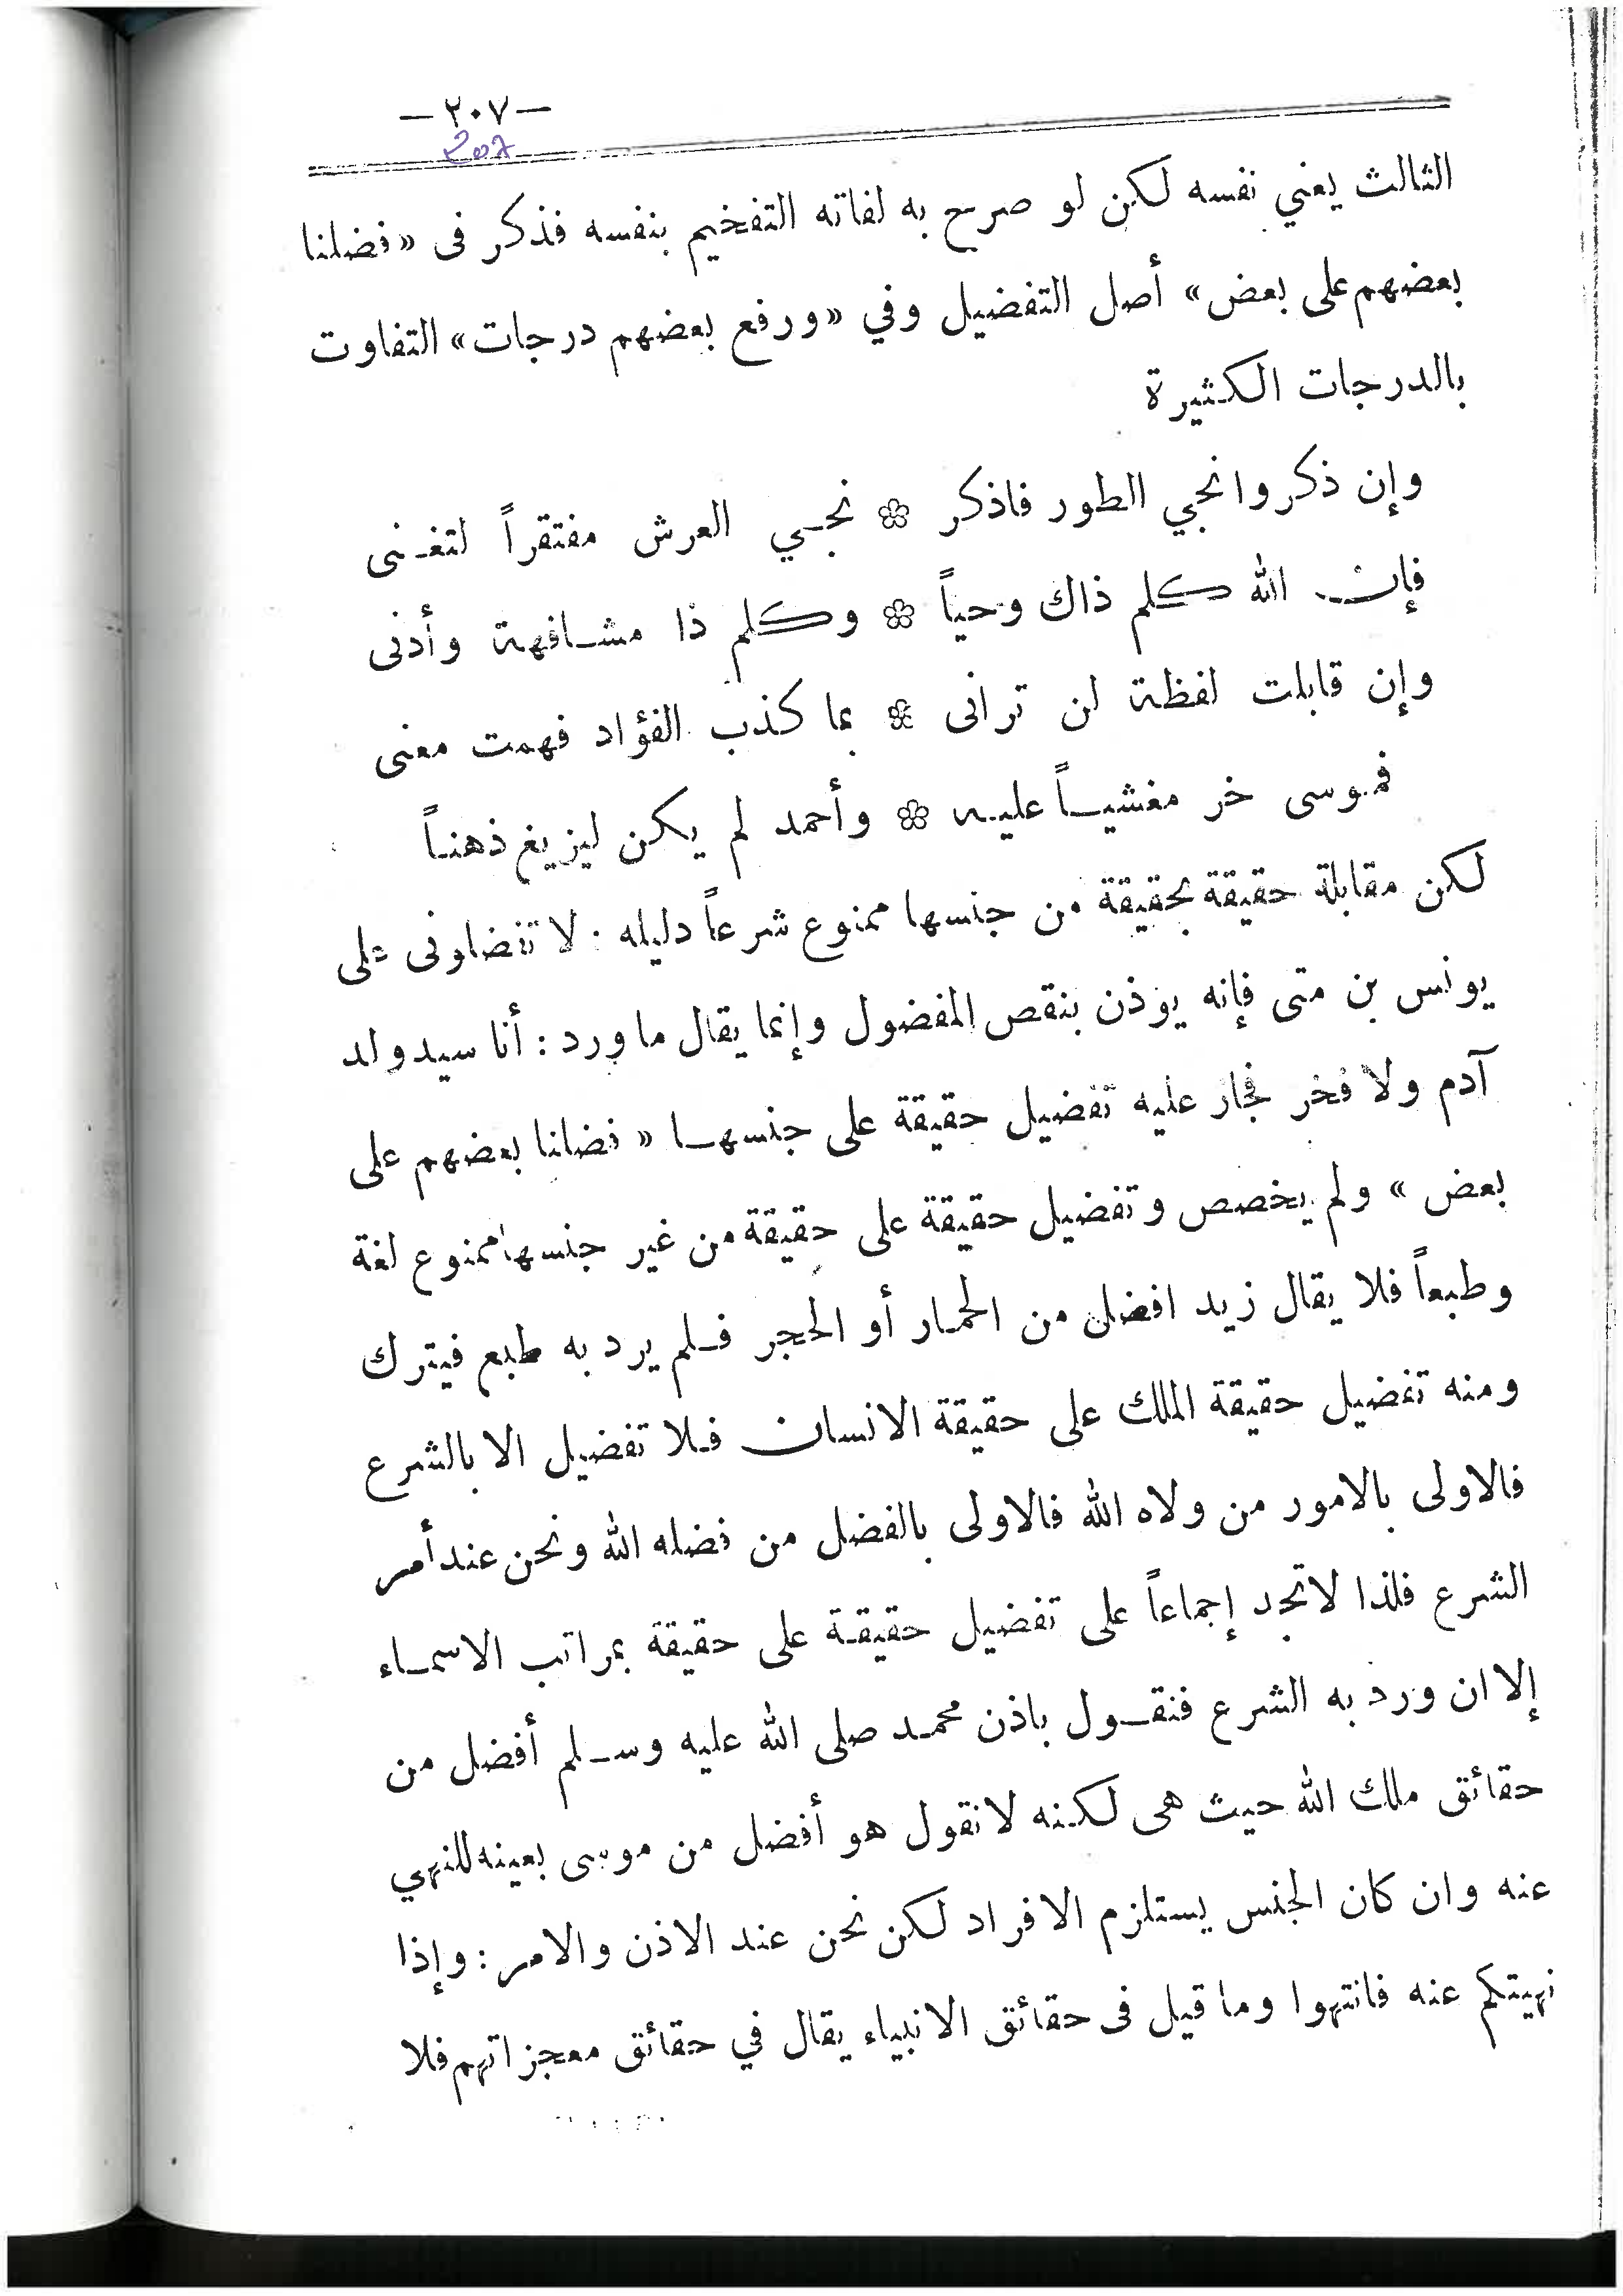 —٢٠٧—
207
الثالث يعني نفسه لكن لو صرح به لفاته التفخيم بنفسه فذكر فى «فضلنا
بعضهم على بعض» أصل التفضيل وفي «ورفع بعضهم درجات» التفاوت
بالدرجات الكثيرة
وإن ذكروا نجي الطور فاذكر ❀ نجي العرش مفتقراً لتغنى
فإن الله كلم ذاك وحياً ❀ وكلم ذا مشافهة وأدنى
وإن قابلت لفظة لن ترانى ❀ بما كذب الفؤاد فهمت معنى
فموسى خر مغشياً عليه ❀ وأحمد لم يكن ليزيغ ذهناً
لكن مقابلة حقيقة بحقيقة من جنسها ممنوع شرعاً دليله : لا تفضلونى على
يونس بن متى فإنه يوذن بنقص المفضول وإنما يقال ما ورد : أنا سيد ولد
آدم ولا فخر فجاز عليه تفضيل حقيقة على جنسها « فضلنا بعضهم على
بعض » ولم يخصص وتفضيل حقيقة على حقيقة من غير جنسها ممنوع لغة
وطبعاً فلا يقال زيد افضل من الحمار أو الحجر فلم يرد به طبع فيترك
ومنه تفضيل حقيقة الملك على حقيقة الانسان فلا تفضيل الا بالشرع
فالاولى بالامور من ولاه الله فالاولى بالفضل من فضله الله ونحن عند أمر
الشرع فلذا لا تجد إجماعاً على تفضيل حقيقة على حقيقة بمراتب الاسماء
إلا ان ورد به الشرع فنقول باذن محمد صلى الله عليه وسلم أفضل من
حقائق ملك الله حيث هى لكنه لا نقول هو أفضل من موسى بعينه للنهي
عنه وان كان الجنس يستلزم الافراد لكن نحن عند الاذن والامر : وإذا
نهيتكم عنه فانتهوا وما قيل فى حقائق الانبياء يقال في حقائق معجزاتهم فلا